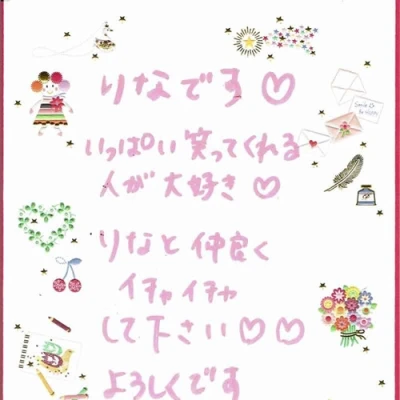 りなです♡
いっぱい笑ってくれる
人が大好き♡
りなと仲良く
イチャイチャ
して下さい♡♡
よろしくです